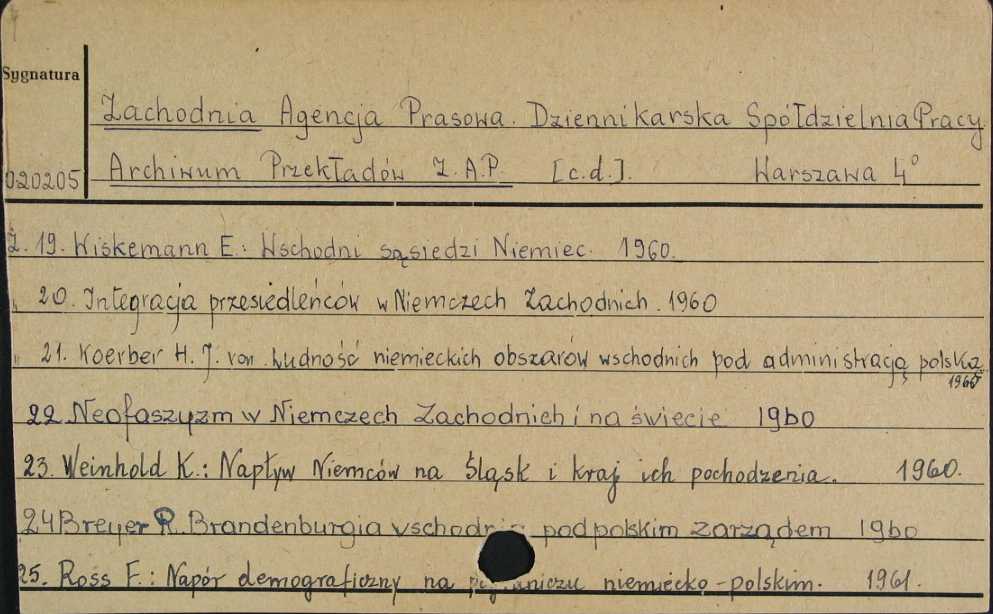 Sygnatura
Zachodnia Agencja Prasowa. Dziennikarska Spółdzielnia Pracy.
020205 Archiwum Przekładów Z.A.P. [c.d.]. Warszawa 4°
Z. 19. Wiskemann E.: Wschodni sąsiedzi Niemiec. 1960.
" 20. Integracja przesiedleńców w Niemczech Zachodnich. 1960
" 21. Koerber H. J. von. Ludność niemieckich obszarów wschodnich pod administracją polską.
1960
22 Neofaszyzm w Niemczech Zachodnich i na świecie 1960
23. Weinhold K.: Napływ Niemców na Śląsk i kraj ich pochodzenia. 1960.
24 Breyer R. Brandenburgia wschodnia pod polskim zarządem 1960
25. Ross F.: Napór demograficzny na niemiecko-polskim. 1961.